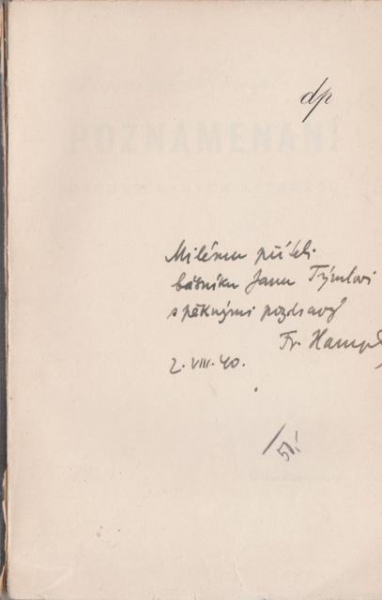 dp
POZNAMENANÍ
Milému příteli
básníku Janu Týmlovi
s pěknými pozdravy
Fr. Hampl
2. VIII. 40.